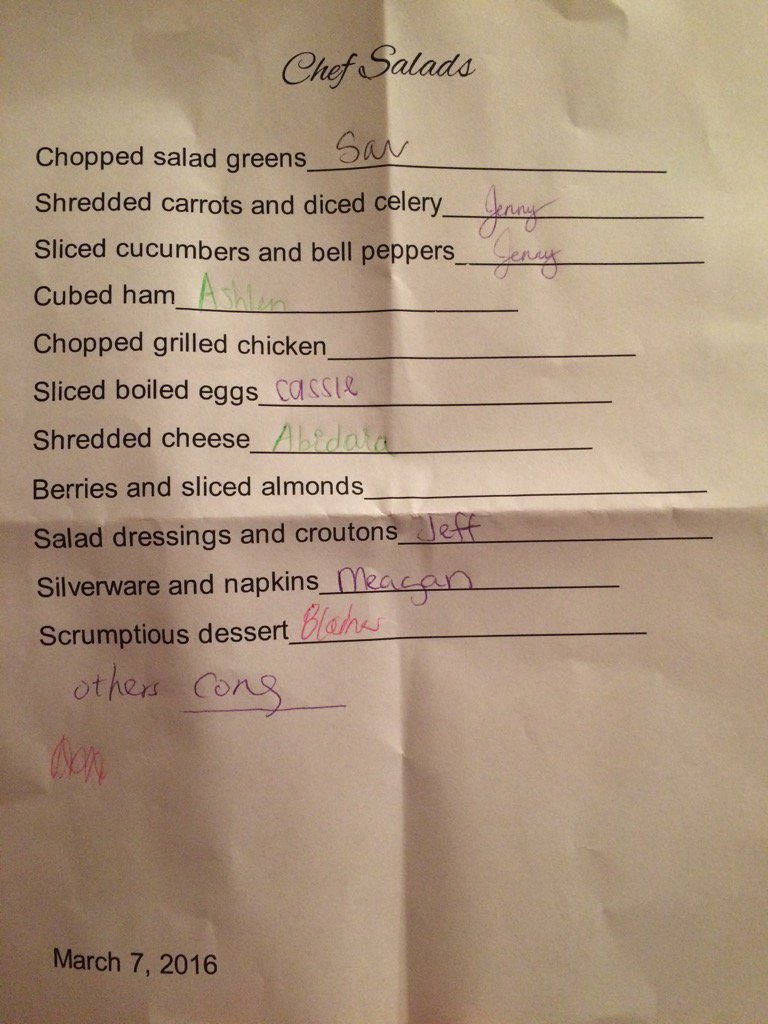 Chef Salads
Chopped salad greens Sav
Shredded carrots and diced celery Jenny
Sliced cucumbers and bell peppers Jenny
Cubed ham
Chopped grilled chicken
Sliced boiled eggs cassie
Shredded cheese
Berries and sliced almonds
Salad dressings and croutons Jeff
Silverware and napkins Meagan
Scrumptious dessert
others Cong
March 7, 2016